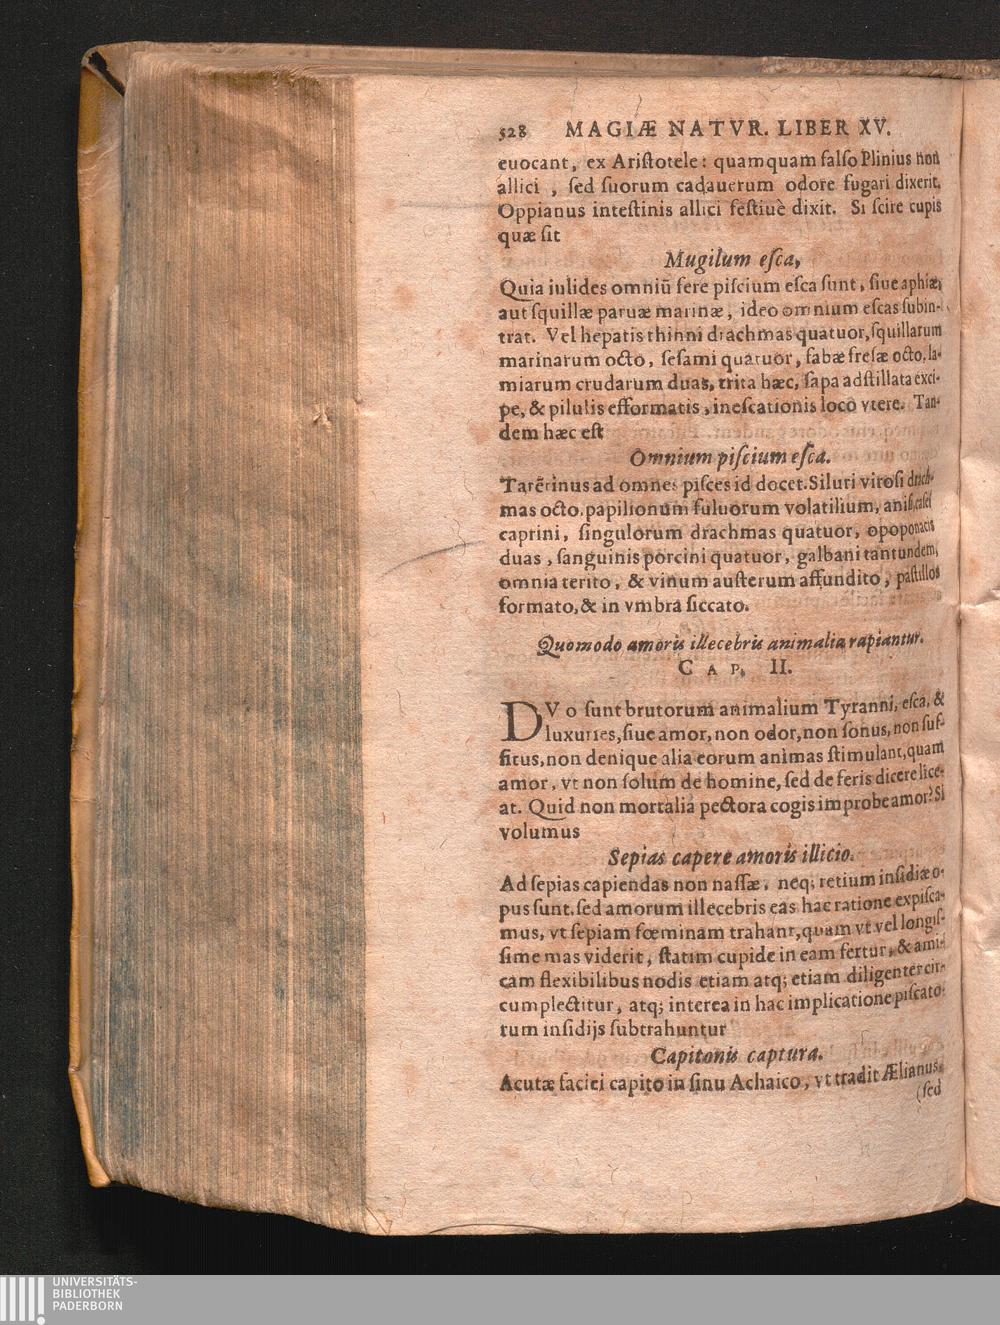 528 MAGIÆ NATVR. LIBER XV.
euocant, ex Ariſtotele: quamquam falſo Plinius non
allici , ſed ſuorum cadauerum odore fugari dixerit.
Oppianus inteſtinis allici feſtiuè dixit. Si ſcire cupis
quæ ſit
Mugilum eſca,
Quia iulides omniū fere piſcium eſca ſunt, ſiue aphiæ,
aut ſquillæ paruæ marinæ, ideo omnium eſcas ſubin-
trat. Vel hepatis thinni drachmas quatuor, ſquillarum
marinarum octo, ſeſami quatuor, fabæ freſæ octo, la-
miarum crudarum duas, trita hæc, ſapa adſtillata exci-
pe, & pilulis efformatis, ineſcationis loco vtere. Tan-
dem hæc eſt
Omnium piſcium eſca.
Tarētinus ad omnes piſces id docet. Siluri viroſi drach-
mas octo, papilionum fuluorum volatilium, aniſi, caſei
caprini, ſingulorum drachmas quatuor, opoponacis
duas, ſanguinis porcini quatuor, galbani tantundem,
omnia terito, & vinum auſterum affundito, paſtillos
formato, & in vmbra ſiccato.
Quomodo amoris illecebris animalia rapiantur.
CAP. II.
DVo ſunt brutorum animalium Tyranni, eſca, &
luxuries, ſiue amor, non odor, non ſonus, non ſuf-
fitus, non denique alia eorum animas ſtimulant, quam
amor, vt non ſolum de homine, ſed de feris dicere lice-
at. Quid non mortalia pectora cogis improbe amor? Si
volumus
Sepias capere amoris illicio.
Ad ſepias capiendas non naſſæ, neq; retium inſidiæ o-
pus ſunt, ſed amorum illecebris eas hac ratione expiſca-
mus, vt ſepiam fœminam trahant, quam vt vel longiſ-
ſime mas viderit, ſtatim cupide in eam fertur, & ami-
cam flexibilibus nodis etiam atq; etiam diligenter cir-
cumplectitur, atq; interea in hac implicatione piſcato-
rum inſidijs ſubtrahuntur
Capitonis captura.
Acutæ faciei capito in ſinu Achaico, vt tradit Ælianus,
(ſed
UNIVERSITÄTS-
BIBLIOTHEK
PADERBORN